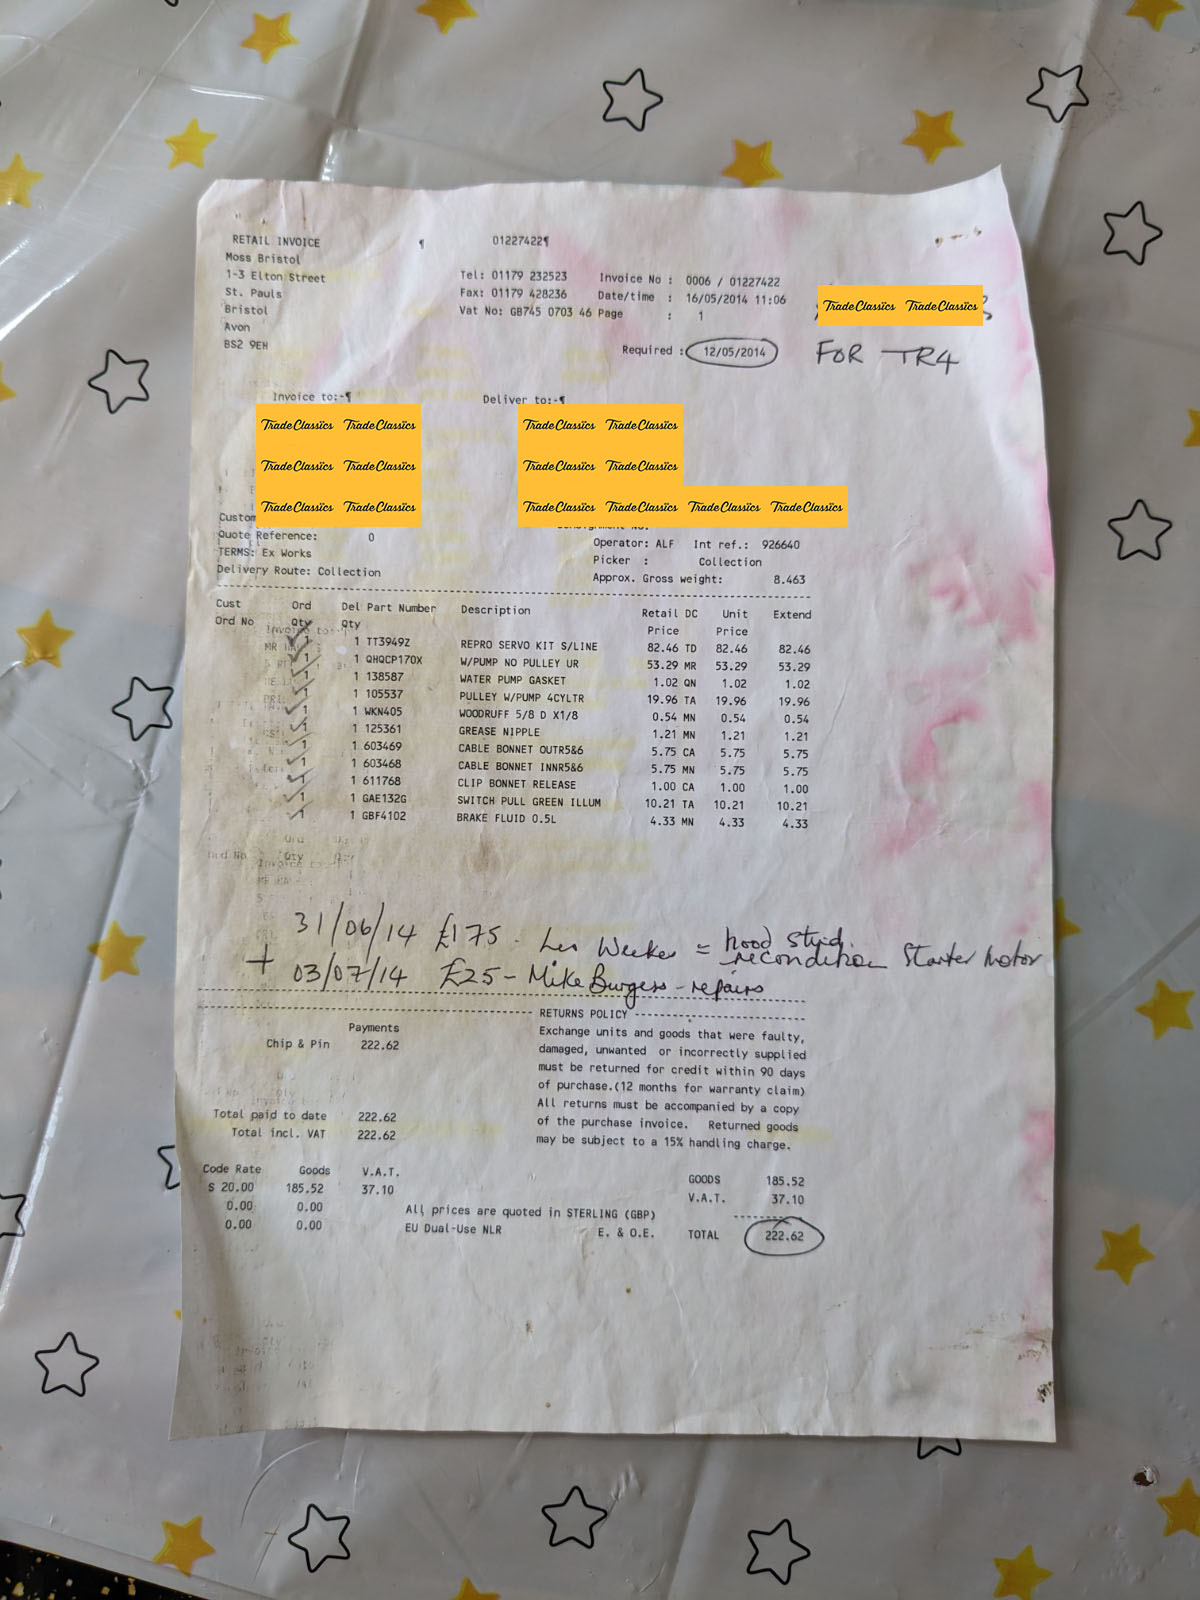 RETAIL INVOICE ¶ 01227422¶
Moss Bristol
1-3 Elton Street
St. Pauls
Bristol
Avon
BS2 9EH
Tel: 01179 232523
Fax: 01179 428236
Vat No: GB745 0703 46
Invoice No : 0006 / 01227422
Date/time : 16/05/2014 11:06
Page : 1
Required : 12/05/2014
TradeClassics TradeClassics
FOR TR4
Invoice to:-¶ Deliver to:-¶
TradeClassics TradeClassics TradeClassics TradeClassics
TradeClassics TradeClassics TradeClassics TradeClassics
TradeClassics TradeClassics TradeClassics TradeClassics TradeClassics TradeClassics
Custom
Quote Reference: 0
TERMS: Ex Works
Delivery Route: Collection
Operator: ALF Int ref.: 926640
Picker : Collection
Approx. Gross weight: 8.463
Cust Ord Del Part Number Description Retail DC Unit Extend
Ord No Qty Qty Price Price
1 1 TT3949Z REPRO SERVO KIT S/LINE 82.46 TD 82.46 82.46
1 1 QHQCP170X W/PUMP NO PULLEY UR 53.29 MR 53.29 53.29
1 1 138587 WATER PUMP GASKET 1.02 QN 1.02 1.02
1 1 105537 PULLEY W/PUMP 4CYLTR 19.96 TA 19.96 19.96
1 1 WKN405 WOODRUFF 5/8 D X1/8 0.54 MN 0.54 0.54
1 1 125361 GREASE NIPPLE 1.21 MN 1.21 1.21
1 1 603469 CABLE BONNET OUTR5&6 5.75 CA 5.75 5.75
1 1 603468 CABLE BONNET INNR5&6 5.75 MN 5.75 5.75
1 1 611768 CLIP BONNET RELEASE 1.00 CA 1.00 1.00
1 1 GAE132G SWITCH PULL GREEN ILLUM 10.21 TA 10.21 10.21
1 1 GBF4102 BRAKE FLUID 0.5L 4.33 MN 4.33 4.33
31/06/14 £175 - = hood stud
recondition Starter Motor
+ 03/07/14 £25 - Mike Burgess - repairs
Payments
Chip & Pin 222.62
Total paid to date 222.62
Total incl. VAT 222.62
RETURNS POLICY
Exchange units and goods that were faulty,
damaged, unwanted or incorrectly supplied
must be returned for credit within 90 days
of purchase.(12 months for warranty claim)
All returns must be accompanied by a copy
of the purchase invoice. Returned goods
may be subject to a 15% handling charge.
Code Rate Goods V.A.T.
S 20.00 185.52 37.10
0.00 0.00
0.00 0.00
All prices are quoted in STERLING (GBP)
EU Dual-Use NLR E. & O.E.
GOODS 185.52
V.A.T. 37.10
TOTAL 222.62